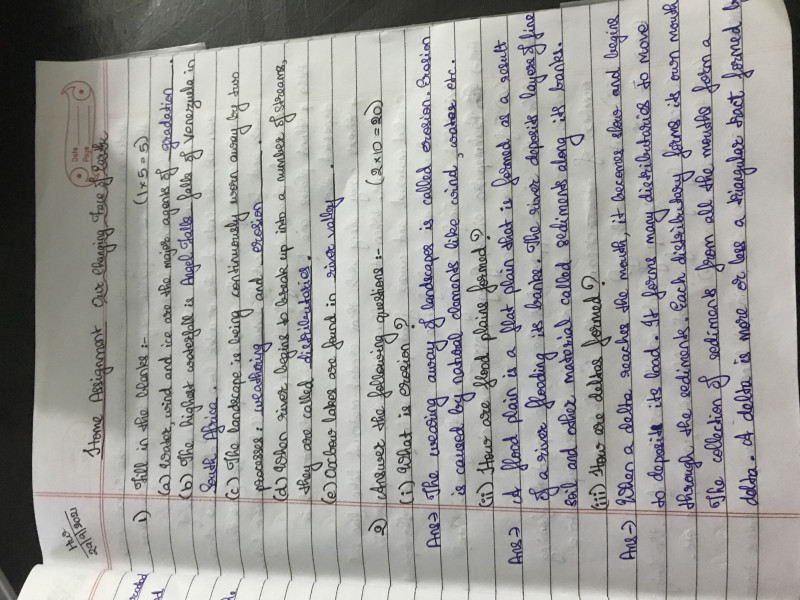 Date
Page
H.C
22/9/2021
Home Assignment Our Changing Face of Earth
1) Fill in the blanks :- (1×5=5)
(a) Water, wind and ice are the major agents of gradation.
(b) The highest waterfall is Angel Falls falls of Venezuela in
South Africa.
(c) The landscape is being continuously worn away by two
processes: weathering and erosion.
(d) When river begins to break up into a number of streams,
they are called distributaries.
(e) Oxbow lakes are found in river valley.
2) Answer the following questions :- (2×10=20)
(i) What is erosion?
Ans→ The wearing away of landscapes is called erosion. Erosion
is caused by natural elements like wind, water etc.
(ii) How are flood plains formed?
Ans→ A flood plain is a flat plain that is formed as a result
of a river flooding its banks. The river deposits layers of fine
soil and other material called sediments along its banks.
(iii) How are deltas formed?
Ans→ When a delta reaches the mouth, it becomes slow and begins
to deposits its load. It forms many distributaries to move
through the sediments. Each distributary forms its own mouth
The collection of sediments from all the mouths form a
delta. A delta is more or less a triangular tract formed